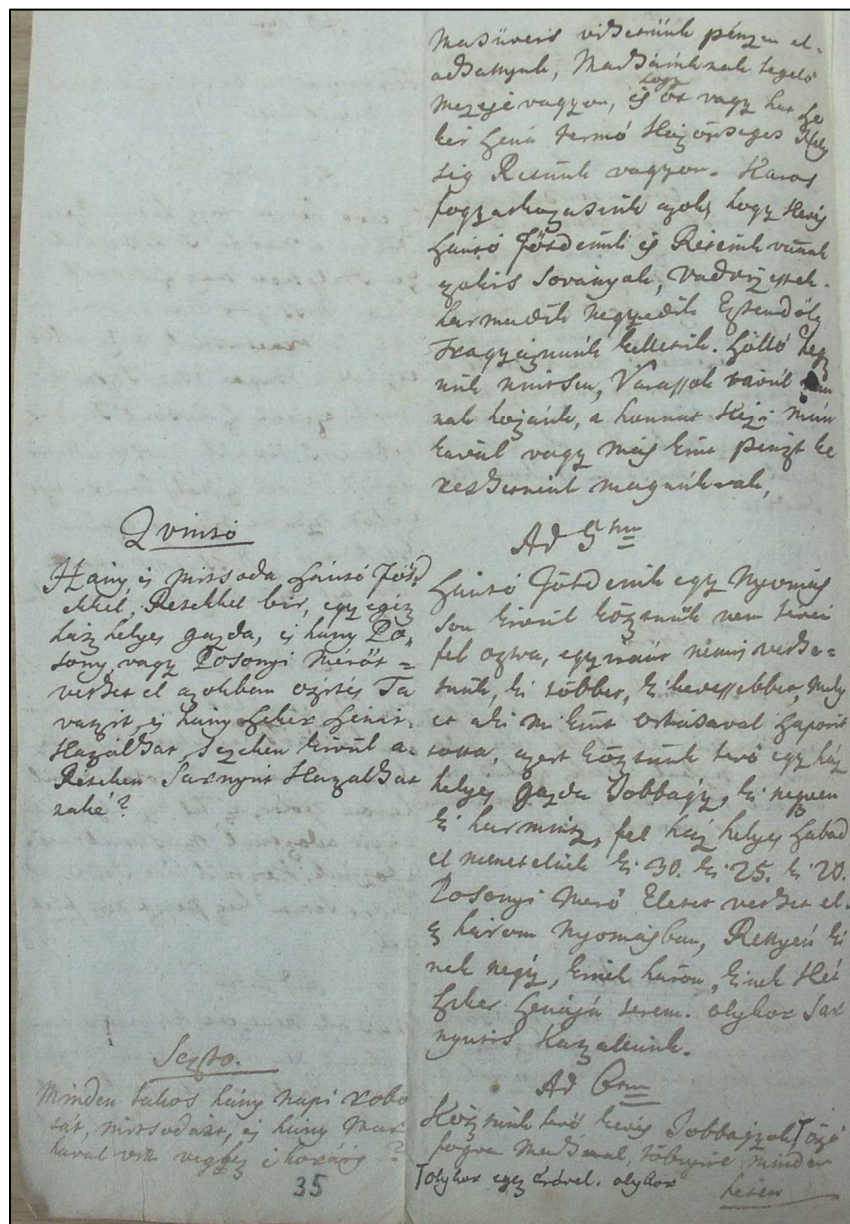 Quinto
Hány és mitsoda szántó föld
ekkel, Retekkel bir, egy egéz
ház helyes gazda, és hány Po,,
sony, vagy Posonyi mérőt =
vethet el azokban őszit és Ta
vaszit, és hány szeker szénát,
Kazálhat, ezeken kivül a
Réteken Sarnyút Kazalhat
nake?
Sexto.
Minden lakos hány napi robo
tát, mitsodást, és hány mar
hával vitt véghez ekoráig?
35
pénzen el,,
adhattyuk, Marháinknak legelő
mezeje vagyon, és hogy öt vagy hat sze
kér szená termő
Retünk vagyon. Káros
fogyatkozasunk azok, hogy kevés
szántó földeink és Reteink vannak
azokis soványak,
harmadik negyedik Esztendőb
Tragyáznunk kelletik. szöllő hegy
ünk nintsen, Varassok távúl van
nak hozzánk, a honnat kézi mun
kával vagy másként pénzt ke
reshetnénk magunknak,
Ad 5tum
szántó földeink egy Nyomás
son kivül köztünk nem lévén
fel osztva, egyaránt nem vethe=
tünk, ki többet, ki kevessebbet, mely
et aki miként ortásával szaporit
totta, azert köztünk levő egy ház
helyes gazda Jobbagy, ki negven
ki harmintz, fel ház helyes szabad
el menetelüek ki 30. ki 25. ki 20.
Posonyi merő Eletet vethet el.
a három nyomásban, Rettyén ki
nek négy, kinek három, kinek két
szeker szenája terem. olykor Sar
nyutis kazalunk.
Ad 6tum
Köztünk levő kevés Jobbagyok
fogva marhával, többnyire minden
olykor egy ökrével. olykor
heten